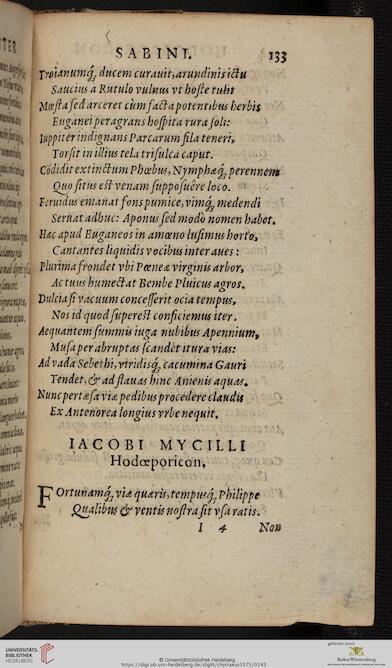 SABINI. 133
Troianumq́; ducem curauit, arundinis ictu
Saucius a Rutulo vulnus vt hoste tulit
Mœsta sed arceret cùm facta potentibus herbis
Euganei peragrans hospita rura soli:
Iuppiter indignans Parcarum fila teneri,
Torsit in illius tela trisulca caput.
Cõdidit extinctum Phœbus, Nymphæq́; perennem
Quo situs est venam supposuêre loco.
Feruidus emanat fons pumice, vimq́; medendi
Seruat adhuc: Aponus sed modò nomen habet.
Hac apud Euganeos in amœno lusimus horto,
Cantantes liquidis vocibus inter aues:
Plurima frondet vbi Pœneæ virginis arbor,
Ac tuus humectat Bembe Pluicus agros.
Dulcia si vacuum concesserit ocia tempus,
Nos id quod superest conficiemus iter.
Aequantem summis iuga nubibus Apennium,
Musa per abruptas scandèt itura vias:
Ad vada Sebethi, viridisq́; cacumina Gauri
Tendet, & ad flauas hinc Anienis aquas.
Nunc pertæsa viæ pedibus procedere claudis
Ex Antenorea longius vrbe nequit.
IACOBI MYCILLI
Hodœporicon.
FOrtunamq́; viæ quæris, tempusq́; Philippe
Qualibus & ventis nostra sit vsa ratis.
I 4 Non
UNIVERSITÄTS-
BIBLIOTHEK
HEIDELBERG
© Universitätsbibliothek Heidelberg
https://digi.ub.uni-heidelberg.de/diglit/chytraeus1575/0143
gefördert durch
Baden-Württemberg